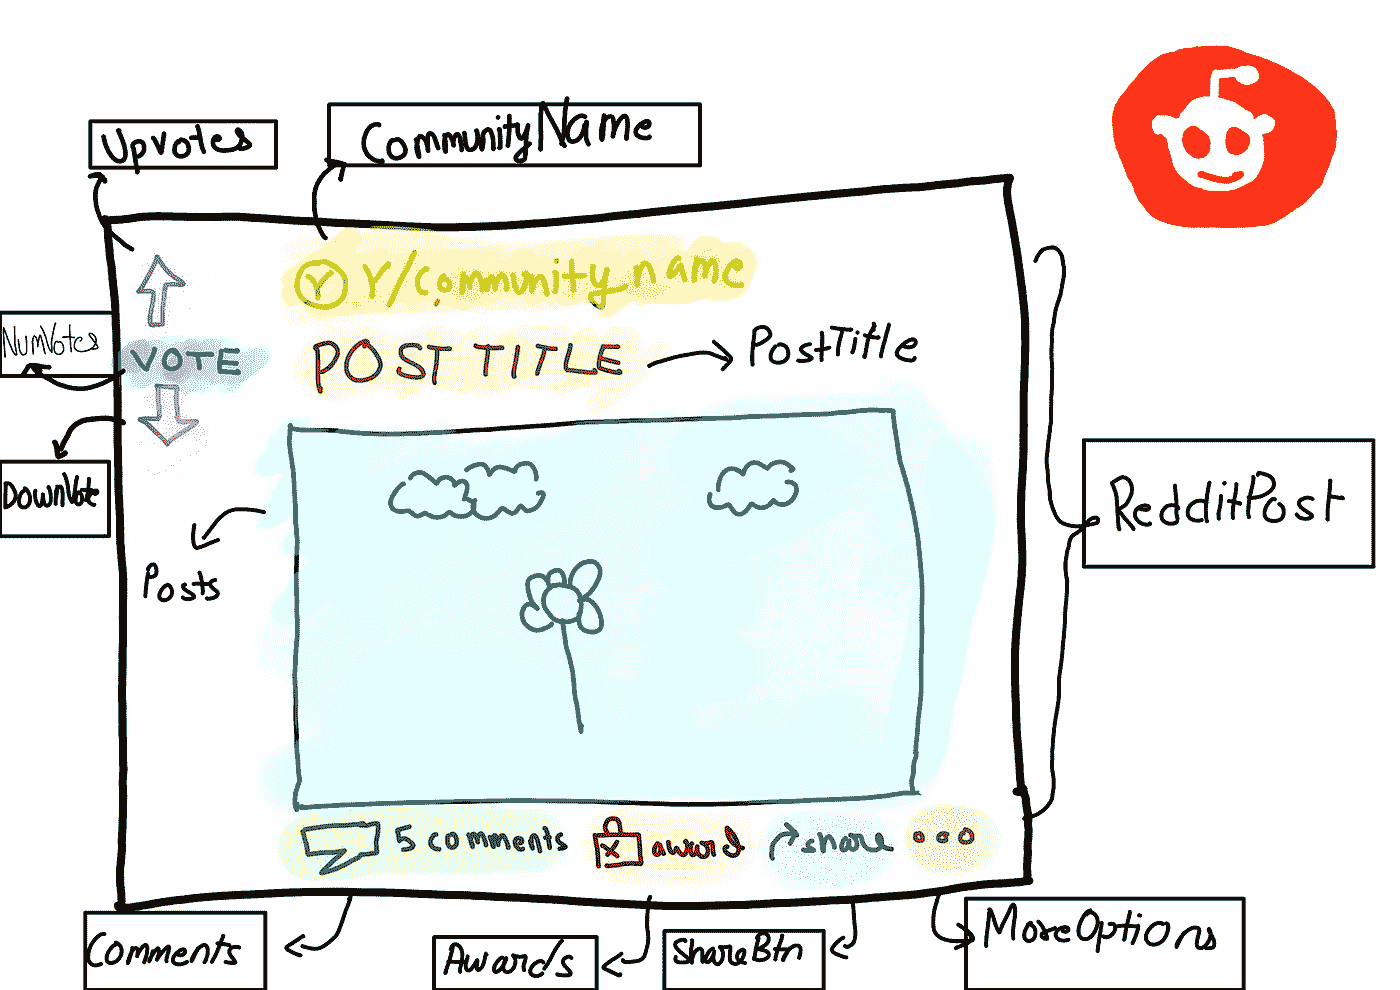 Upvotes
CommunityName
Y Y/Community name
NumVotes
VOTE
POST TITLE
PostTitle
DownVote
RedditPost
Posts
5 comments
award
share
Comments
Awards
ShareBtn
MoreOptions